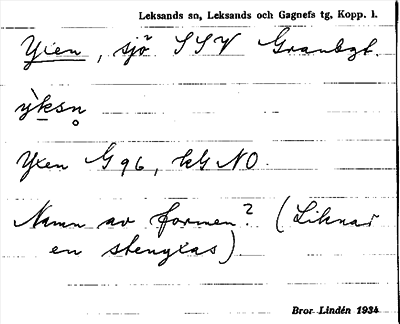 Leksands sn, Leksands och Gagnefs tg, Kopp. l.
Yxen, sjö SSV Granbgt.
ỳksn̥
Yxen G 96, kG NO.
Namn av formen? (Liknar
en stengxas)
Bror Lindén 1934